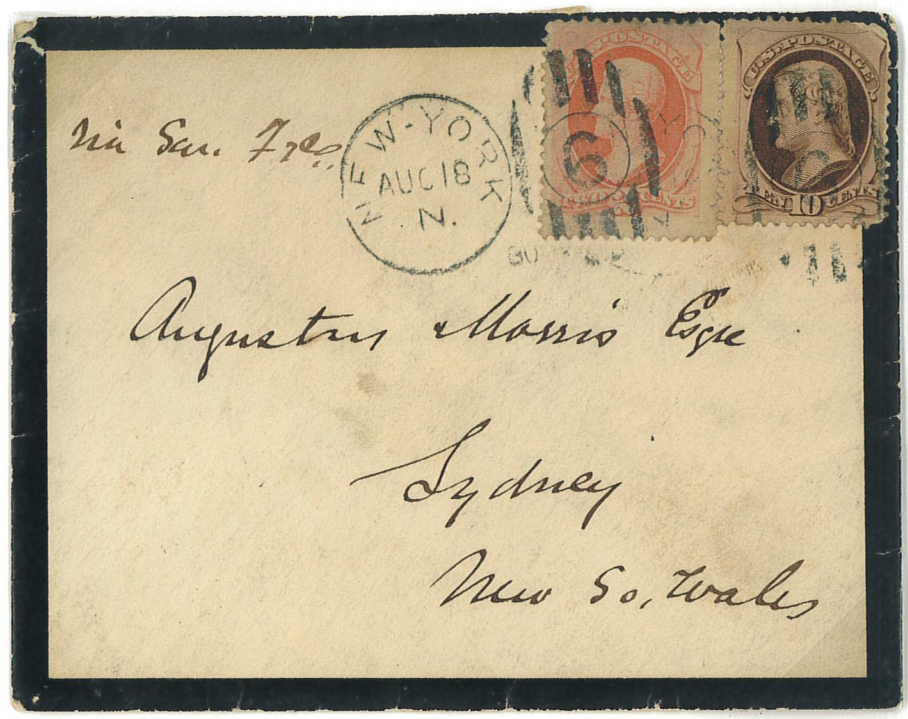 via San. Fco
NEW-YORK
AUG 18
N.
6
U.S. POSTAGE
TEN 10 CENTS
Augustus Morris Esqre
Sydney
New So, Wales